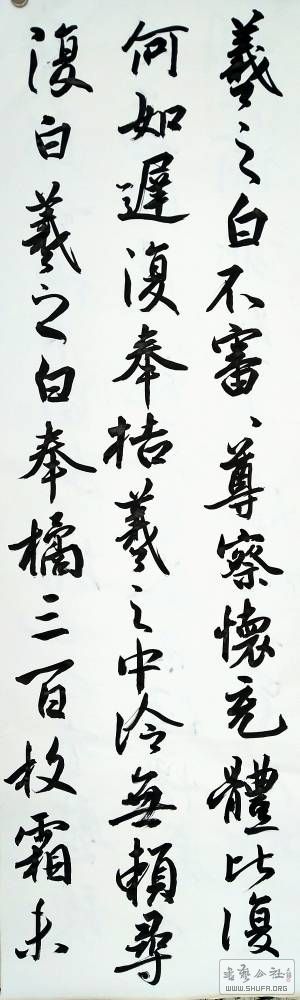 羲之白不審、尊察懷充體比復
何如遲復奉羲之中冷無賴尋
復白羲之白奉橘三百枚霜未
WWW.SHUFA.ORG